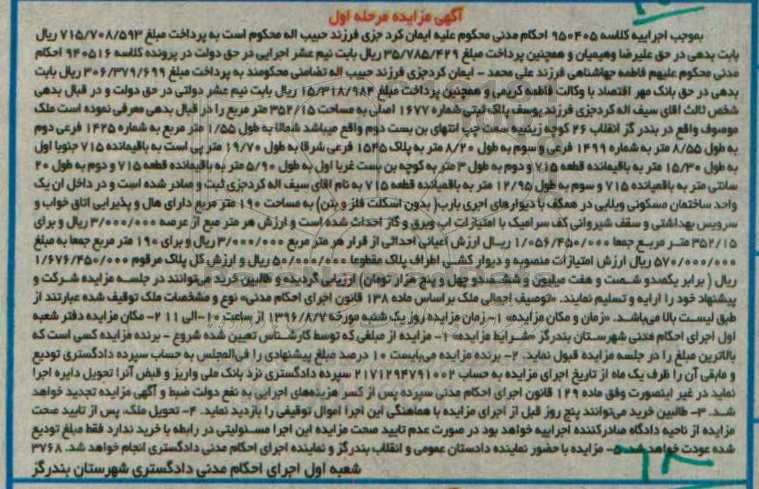 آگهی مزایده مرحله اول
بموجب اجراییه کلاسه ۹۵۰۴۰۵ احکام مدنی محکوم علیه ایمان کرد جزی فرزند حبیب اله محکوم است به پرداخت مبلغ ۷۱۵/۷۰۸/۵۹۳ ریال
بابت بدهی در حق علیرضا وهیمیان و همچنین پرداخت مبلغ ۳۵/۷۸۵/۴۲۹ ریال بابت نیم عشر اجرایی در حق دولت در پرونده کلاسه ۹۴۰۵۱۶ احکام
مدنی محکوم علیهم فاطمه جهاشناهی فرزند علی محمد - ایمان کردجزی فرزند حبیب اله تضامنی محکومند به پرداخت مبلغ ۳۰۶/۳۷۹/۶۹۹ ریال بابت
بدهی در حق بانک مهر اقتصاد با وکالت فاطمه کریمی و همچنین پرداخت مبلغ ۱۵/۳۱۸/۹۸۴ ریال بابت نیم عشر دولتی در حق دولت و در قبال بدهی
شخص ثالث اقای سیف اله کردجزی فرزند یوسف پلاک ثبتی شماره ۱۶۷۷ اصلی به مساحت ۳۵۲/۱۵ متر مربع را در قبال بدهی معرفی نموده است ملک
موصوف واقع در بندر گز انقلاب ۲۶ کوچه زینبیه سمت چپ انتهای بن بست دوم واقع میباشد شمالا به طول ۱/۵۵ متر مربع به شماره ۱۴۲۵ فرعی دوم
به طول ۸/۵۵ متر به شماره ۱۴۹۹ فرعی و سوم به طول ۸/۲۰ متر به پلاک ۱۵۴۵ فرعی شرقا به طول ۱۹/۷۰ متر پی است به باقیمانده ۷۱۵ جنوبا اول
به طول ۱۵/۳۰ متر به باقیمانده قطعه ۷۱۵ و دوم به طول ۳ متر به کوچه بن بست غربا اول به طول ۵/۹۰ متر به باقیمانده قطعه ۷۱۵ و دوم به طول ۲۰
سانتی متر به باقمیانده ۷۱۵ و سوم به طول ۱۲/۹۵ متر به باقمیانده قطعه ۷۱۵ به نام اقای سیف اله کردجزی ثبت و صادر شده است و در داخل ان یک
واحد ساختمان مسکونی ویلایی در همکف با دیوارهای اجری باربر( بدون اسکلت فلز و بتن) به مساحت ۱۹۰ متر مربع دارای هال و پذیرایی اتاق خواب و
سرویس بهداشتی و سقف شیروانی کف سرامیک با امتیازات اب وبرق و گاز احداث شده است و ارزش هر متر مبع از عرصه ۳/۰۰۰/۰۰۰ ریال و برای
۳۵۲/۱۵ متر مربع جمعا ۱/۰۵۶/۴۵۰/۰۰۰ ریال ارزش اعیانی احداثی از قرار هر متر مربع ۳/۰۰۰/۰۰۰ ریال و برای ۱۹۰ متر مربع جمعا به مبلغ
۵۷۰/۰۰۰/۰۰۰ ریال ارزش امتیازات منصوبه و دیوار کشی اطراف پلاک مقطوعا ۵۰/۰۰۰/۰۰۰ ریال و ارزش کل پلاک مرقوم ۱/۶۷۶/۴۵۰/۰۰۰
ریال ( برابر یکصدو شصت و هفت میلیون و ششصدو چهل و پنج هزار تومان) ارزیابی گردیده و طالبین خرید می‌توانند در جلسه مزایده شرکت و
پیشنهاد خود را ارایه و تسلیم نمایند. «توصیف اجمالی ملک بر اساس ماده ۱۳۸ قانون اجرای احکام مدنی» نوع و مشخصات ملک توقیف شده عبارتند از
طبق لیست بالا می‌باشد. «زمان و مکان مزایده» ۱- زمان مزایده روز یک شنبه مورخه ۱۳۹۶/۸/۷ از ساعت ۱۰ الی ۱۱ ۲- مکان مزایده دفتر شعبه
اول اجرای احکام مدنی شهرستان بندرگز «شرایط مزایده» ۱- مزایده از مبلغی که توسط کارشناس تعیین شده شروع - برنده مزایده کسی است که
بالاترین مبلغ را در جلسه مزایده قبول نماید. ۲- برنده مزایده می‌بایست ۱۰ درصد مبلغ پیشنهادی را فی‌المجلس به حساب سپرده دادگستری تودیع
و مابقی آن را ظرف یک ماه از تاریخ اجرای مزایده به حساب ۲۱۷۱۲۹۴۷۹۱۰۰۲ سپرده دادگستری نزد بانک ملی واریز و قبض آنرا تحویل دایره اجرا
نماید در غیر اینصورت وفق ماده ۱۲۹ قانون اجرای احکام مدنی سپرده پس از کسر هزینه‌های اجرایی به نفع دولت ضبط و آگهی مزایده تجدید خواهد
شد. ۳- طالبین خرید می‌توانند پنج روز قبل از اجرای مزایده با هماهنگی این اجرا اموال توقیفی را بازدید نماید. ۴- تحویل ملک، پس از تایید صحت
مزایده از ناحیه دادگاه صادرکننده اجراییه خواهد بود در صورت عدم تایید صحت مزایده این اجرا مسئولیتی در رابطه با خرید ندارد فقط مبلغ تودیع
شده عودت خواهد شد. ۵- مزایده با حضور نماینده دادستان عمومی و انقلاب بندرگز و نماینده اجرای احکام مدنی دادگستری انجام خواهد شد. ۳۷۶۸
شعبه اول اجرای احکام مدنی دادگستری شهرستان بندرگز